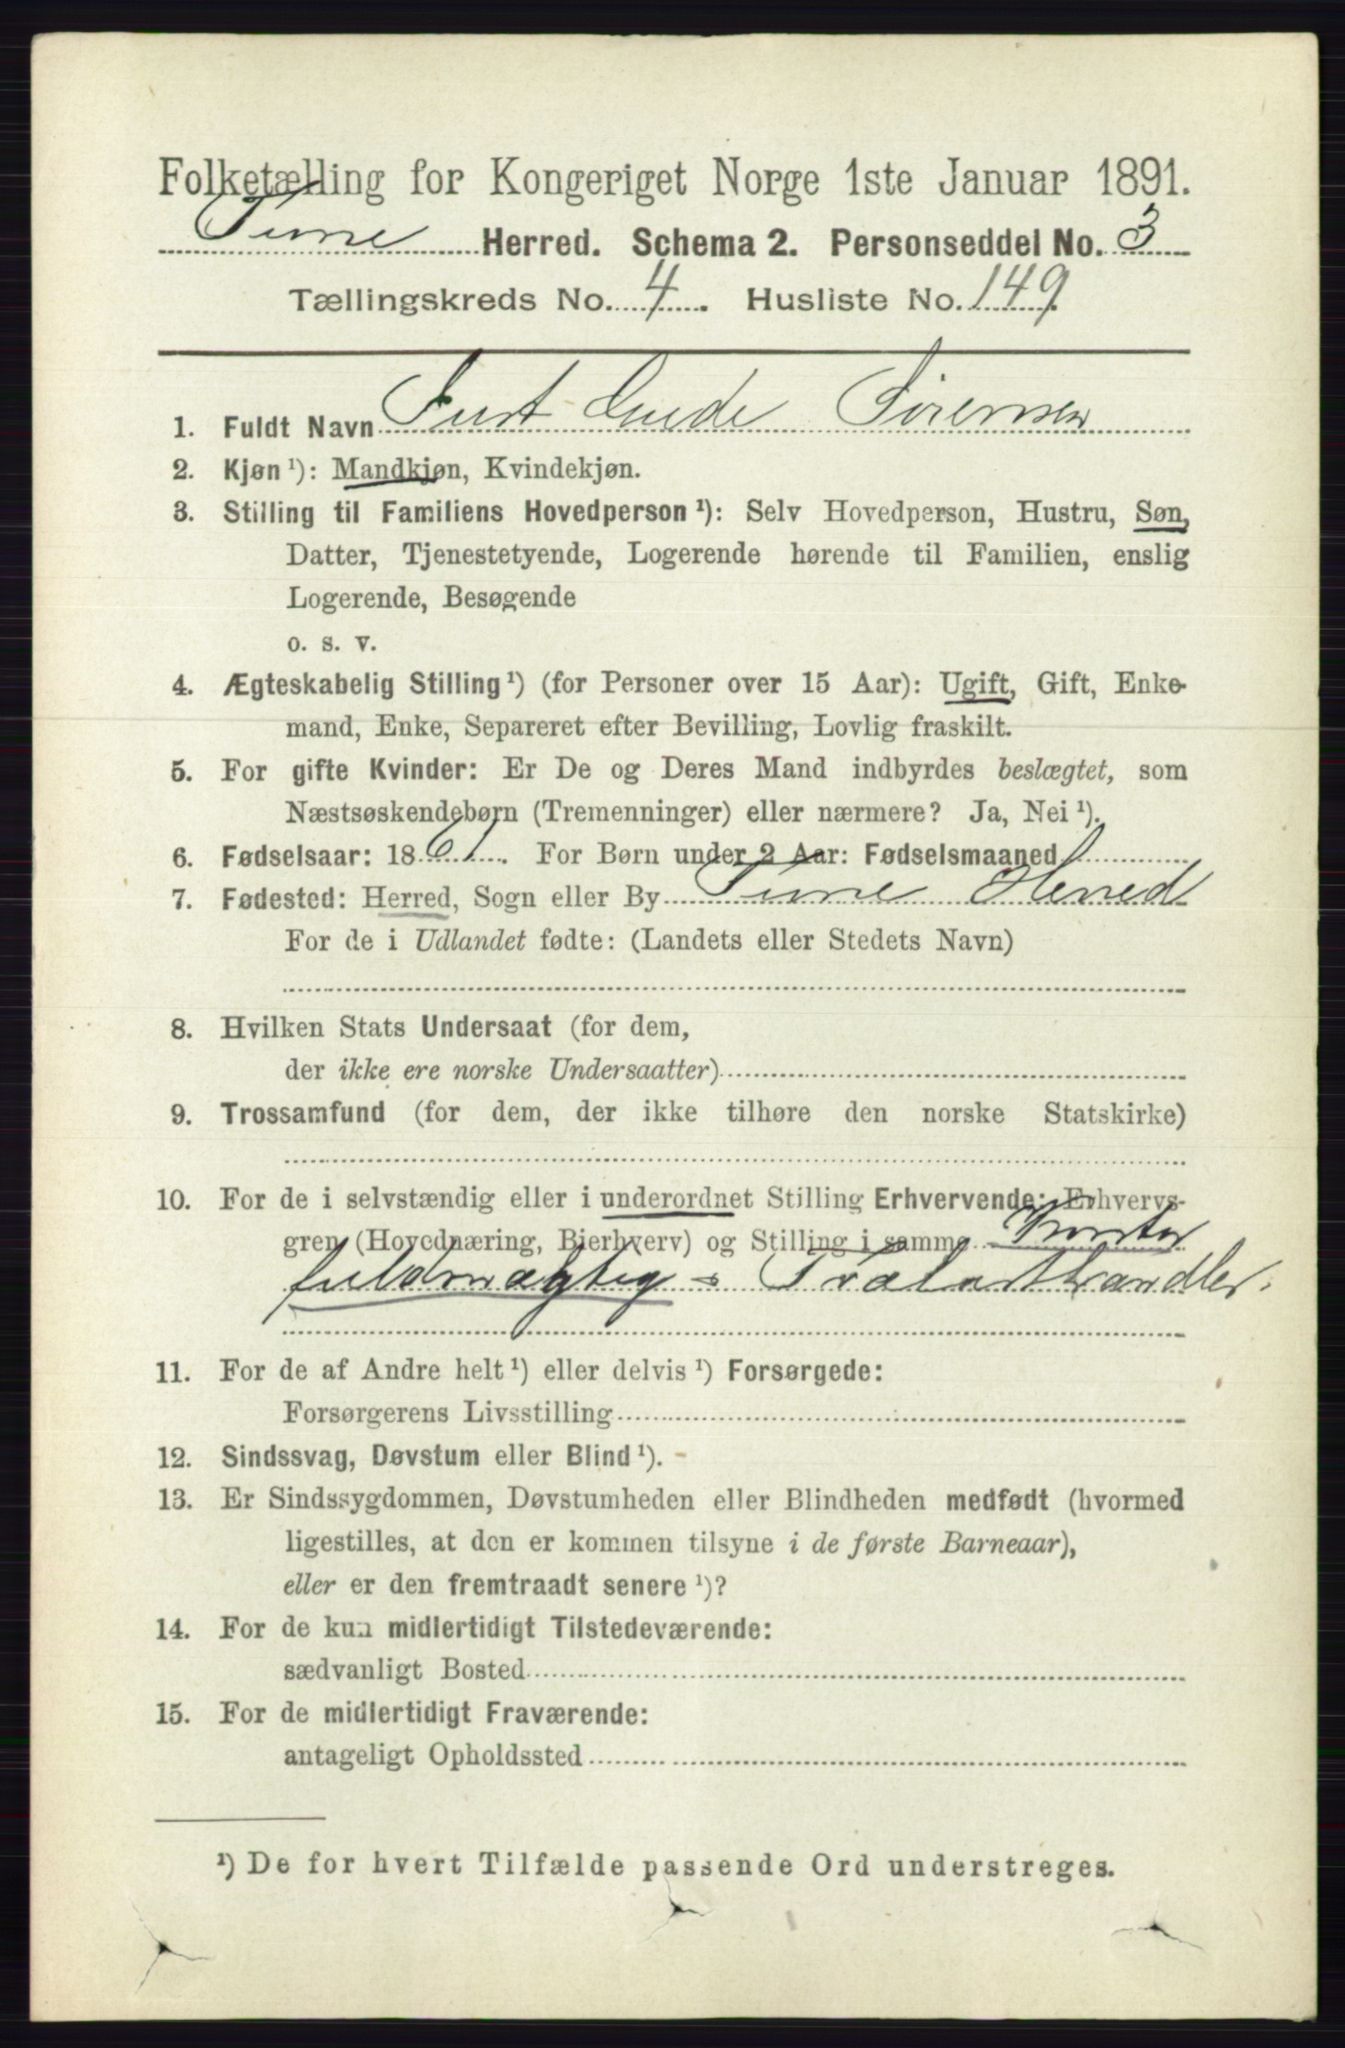 Folketælling for Kongeriget Norge 1ste Januar 1891.
Tune Herred. Schema 2. Personseddel No. 3
Tællingskreds No. 4. Husliste No. 149
1. Fuldt Navn Just Gude Sørensen
2. Kjøn ¹): Mandkjøn, Kvindekjøn.
3. Stilling til Familiens Hovedperson ¹): Selv Hovedperson, Hustru, Søn,
Datter, Tjenestetyende, Logerende hørende til Familien, enslig
Logerende, Besøgende
o. s. v.
4. Ægteskabelig Stilling ¹) (for Personer over 15 Aar): Ugift, Gift, Enke-
mand, Enke, Separeret efter Bevilling, Lovlig fraskilt.
5. For gifte Kvinder: Er De og Deres Mand indbyrdes beslægtet, som
Næstsøskendebørn (Tremenninger) eller nærmere? Ja, Nei ¹).
6. Fødselsaar: 1861. For Børn under 2 Aar: Fødselsmaaned
7. Fødested: Herred, Sogn eller By Tune Herred
For de i Udlandet fødte: (Landets eller Stedets Navn)
8. Hvilken Stats Undersaat (for dem,
der ikke ere norske Undersaatter)
9. Trossamfund (for dem, der ikke tilhøre den norske Statskirke)
10. For de i selvstændig eller i underordnet Stilling Erhvervende: Erhvervs-
gren (Hovednæring, Bierhverv) og Stilling i samme Kontor
fuldmægtig - Trælasthandler.
11. For de af Andre helt ¹) eller delvis ¹) Forsørgede:
Forsørgerens Livsstilling
12. Sindssvag, Døvstum eller Blind ¹). -
13. Er Sindssygdommen, Døvstumheden eller Blindheden medfødt (hvormed
ligestilles, at den er kommen tilsyne i de første Barneaar),
eller er den fremtraadt senere ¹)?
14. For de kun midlertidigt Tilstedeværende:
sædvanligt Bosted
15. For de midlertidigt Fraværende:
antageligt Opholdssted
¹) De for hvert Tilfælde passende Ord understreges.